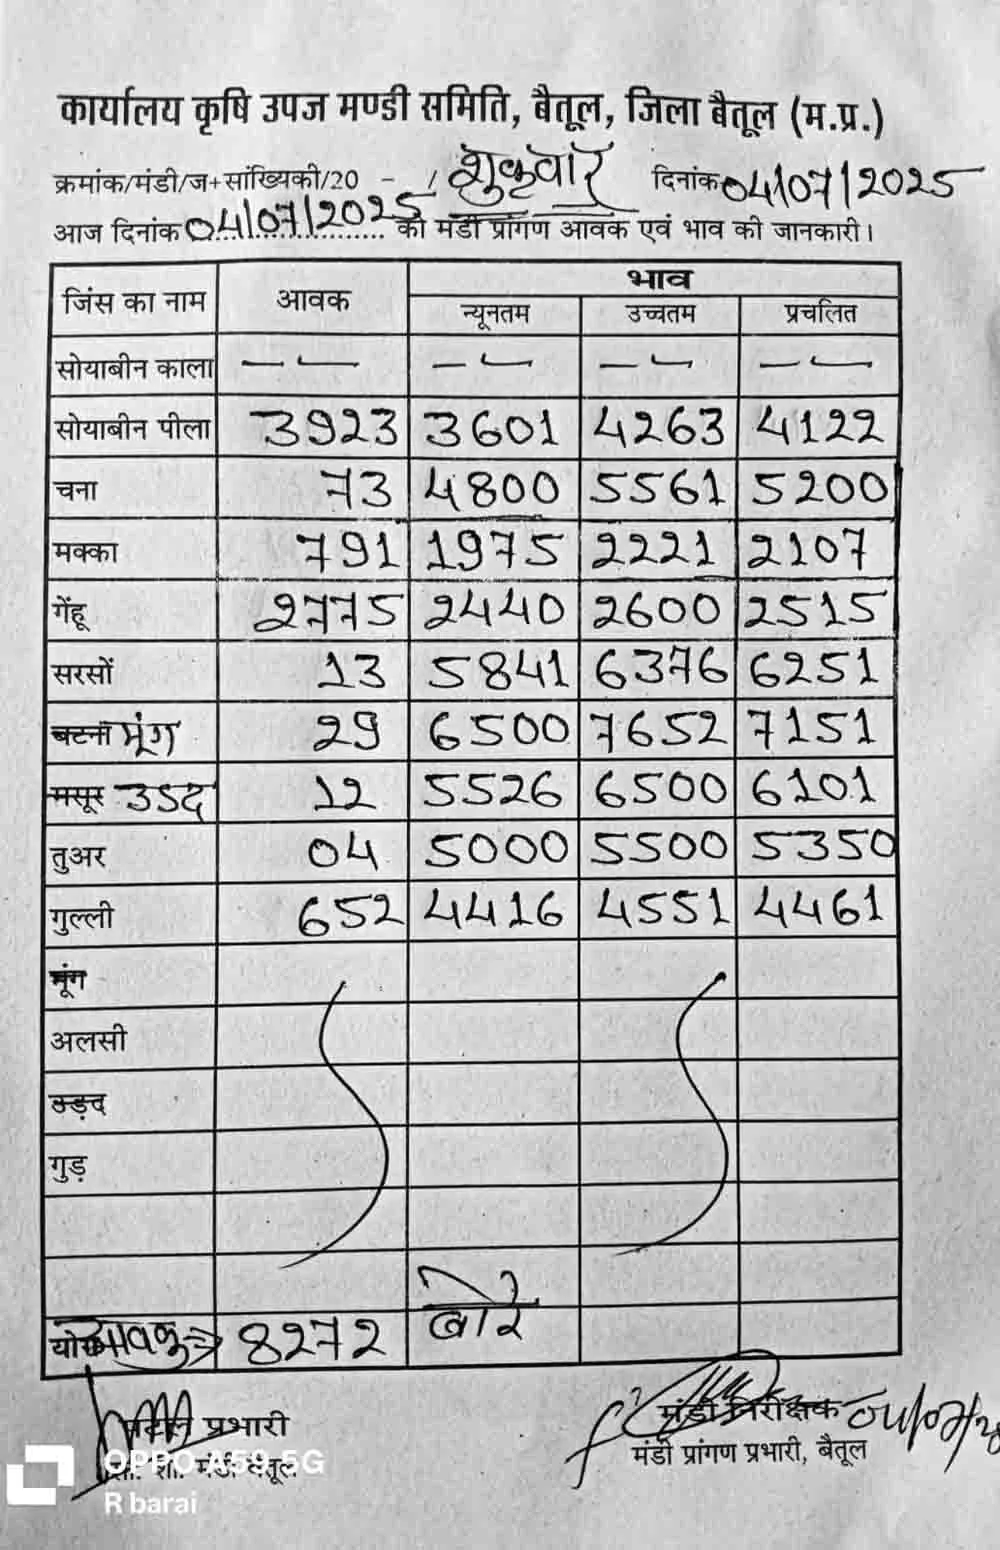 कार्यालय कृषि उपज मण्डी समिति, बैतूल, जिला बैतूल (म.प्र.)
क्रमांक/मंडी/ज+सांख्यिकी/20 - / शुक्रवार दिनांक 04/07/2025
आज दिनांक 04/07/2025 को मंडी प्रांगण आवक एवं भाव की जानकारी।
जिंस का नाम आवक भाव
न्यूनतम उच्चतम प्रचलित
सोयाबीन काला — — — — — — — —
सोयाबीन पीला 3923 3601 4263 4122
चना 73 4800 5561 5200
मक्का 791 1975 2221 2107
गेंहू 2775 2440 2600 2515
सरसों 13 5841 6376 6251
बटना मूंग 29 6500 7652 7151
मसूर उडद 12 5526 6500 6101
तुअर 04 5000 5500 5350
गुल्ली 652 4416 4551 4461
मूंग
अलसी
उड़द
गुड़
योग आवक → 8272 बोरे
प्रभारी मंडी निरीक्षक
मंडी बैतूल मंडी प्रांगण प्रभारी, बैतूल
OPPO A59 5G
R barai